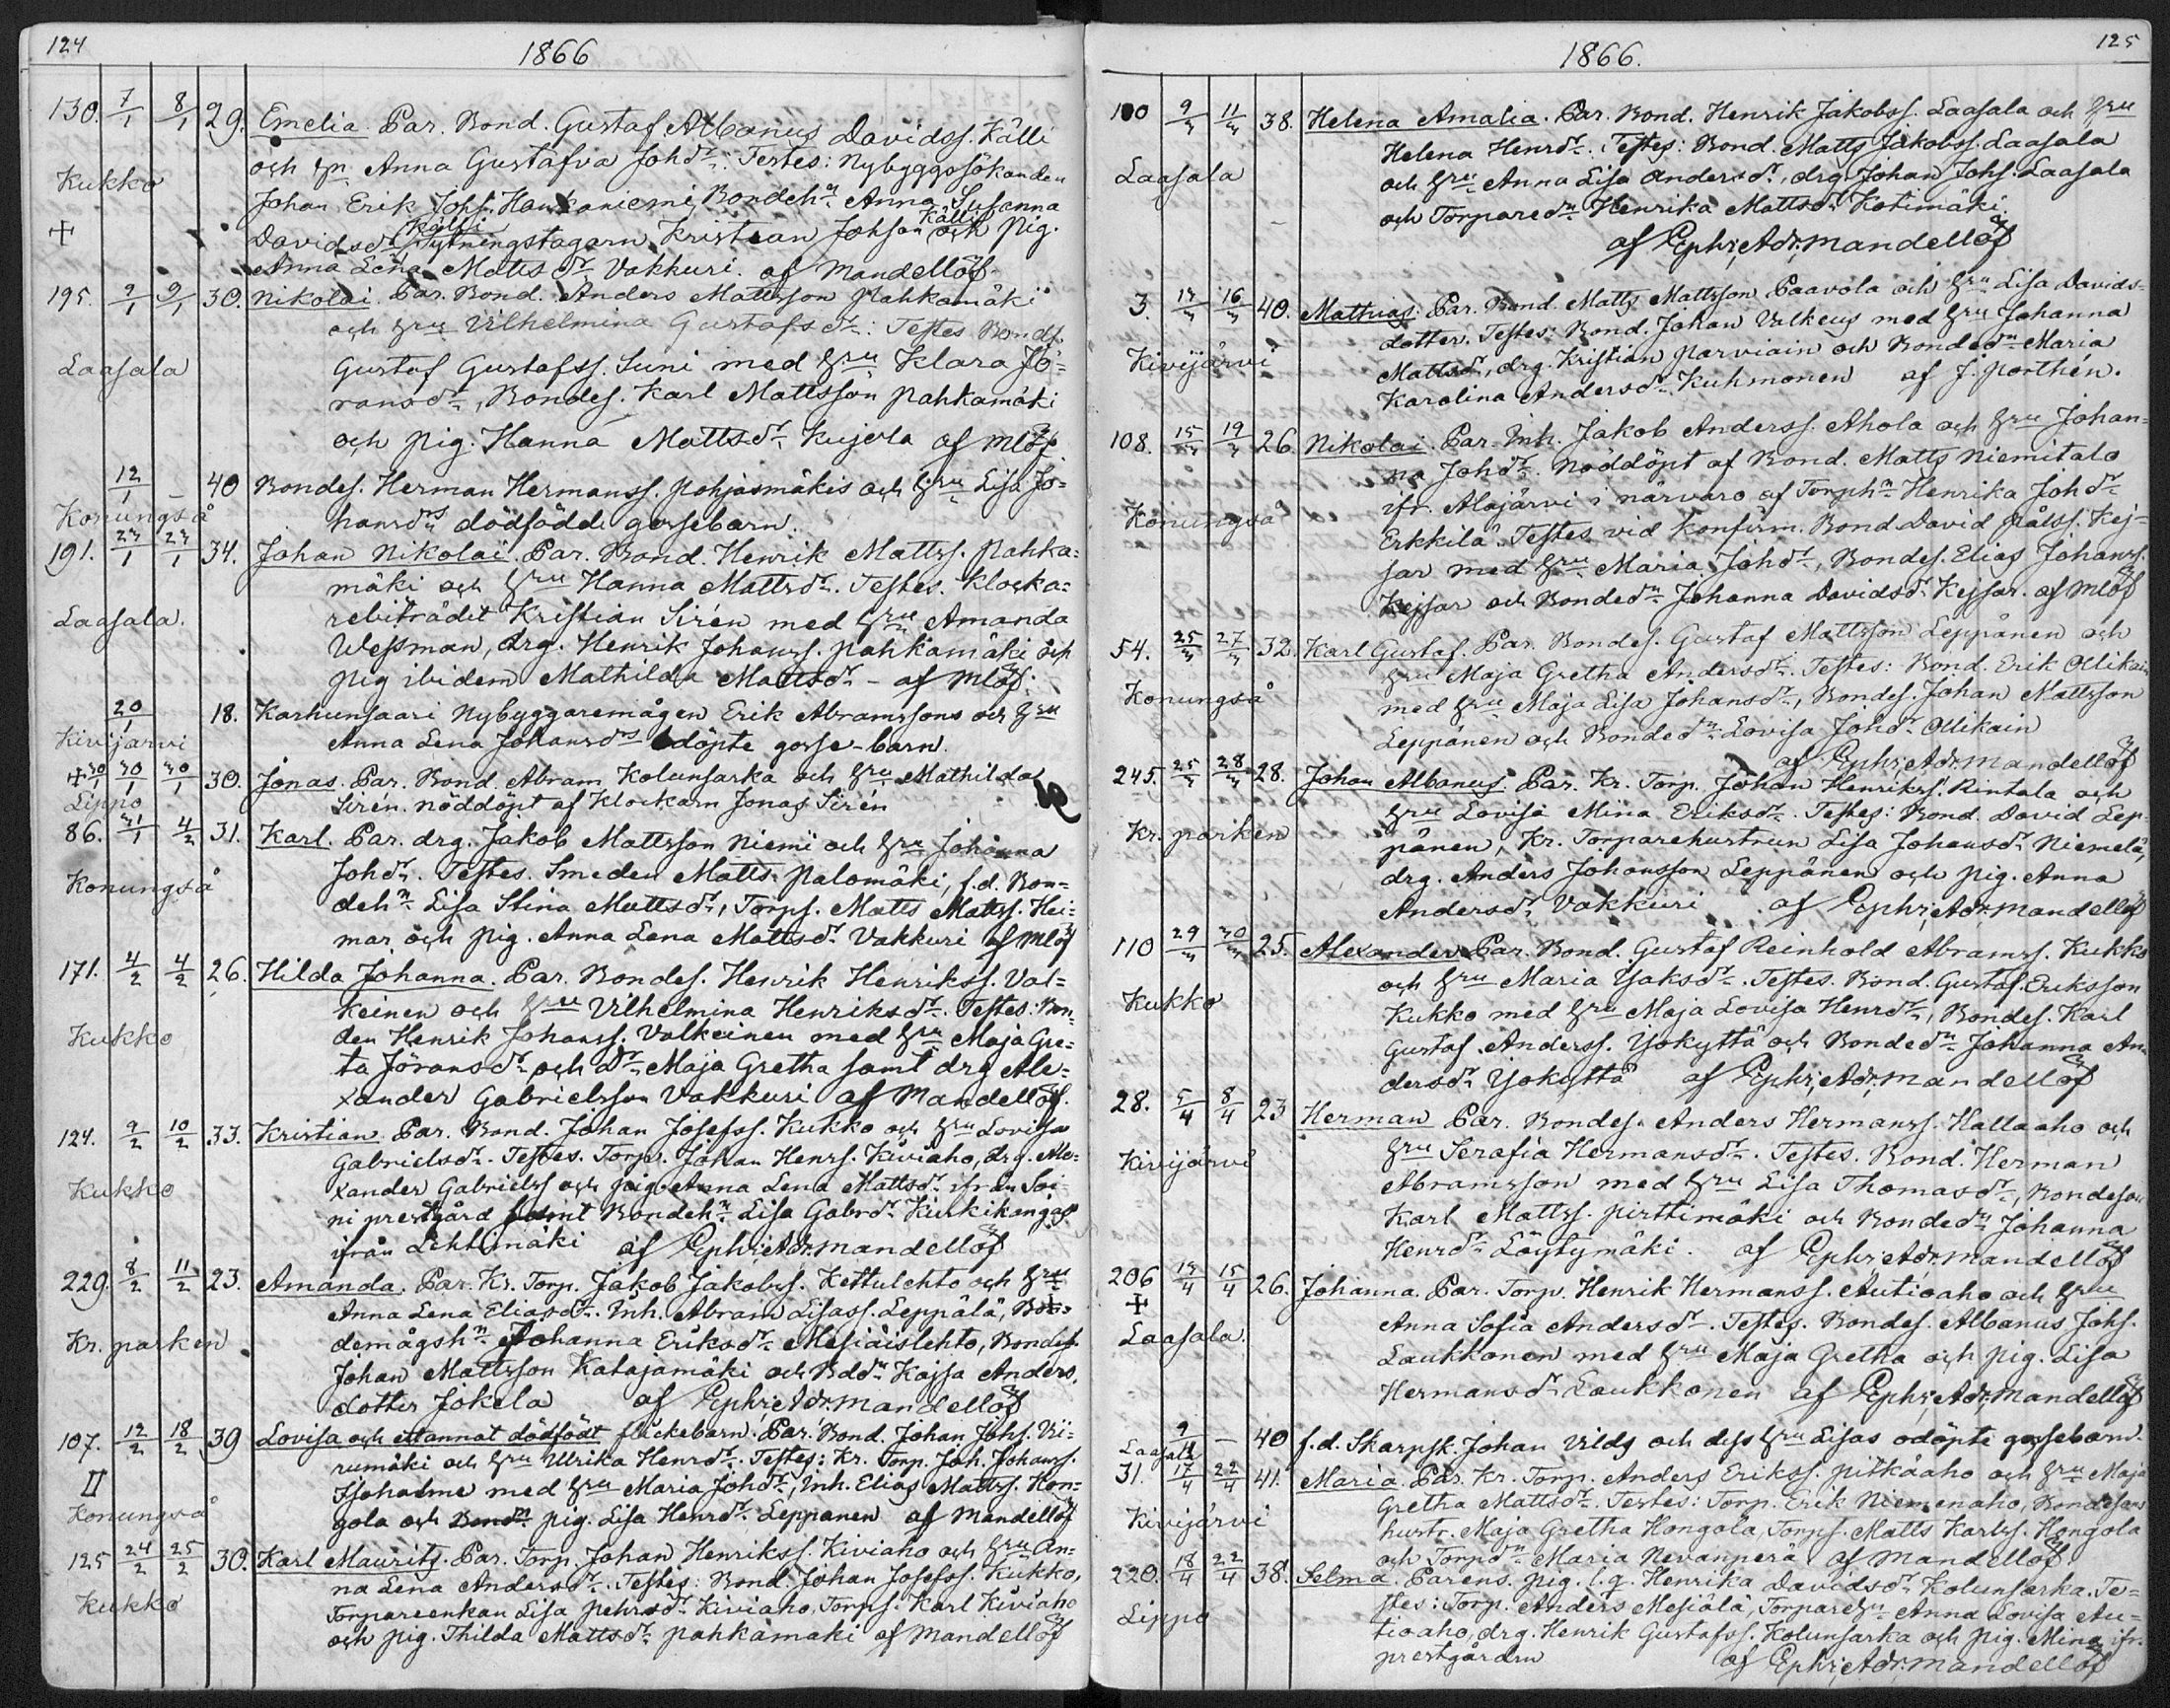 124
1866
130. 7/1 8/1 29. Emelia. Par. Bond. Gustaf Albanus Davidss. Källi
och hn Anna Gustafva Johdr: Testes: Nybyggssökanden
Kukko
Johan Erik Johs. Haukaniemi, Bondehn Anna Susanna
Källi Källi
+ Davidsdr, Sytningstagarn Kristian Johson och Pig.
Anna Lena Mattsdr Vakkuri. af Mandellöf
195. 9/1 9/1 30. Nikolai. Par. Bond. Anders Mattsson Pahkamäki
och hru Vilhelmina Gustafsdr: Testes Bonds.
Laasala Gustaf Gustafss. Suni med hru Klara Jö=
ransdr, Bondes. Karl Mattsson Pahkamäki
och Pig. Hanna Mattsdr Kujala af Mlöf.
12/1 – 40 Bondes. Herman Hermanss. Pohjasmäkis och hru Lisa Jo=
Konungså hansdrs dödfödde gossebarn.
191. 23/1 23/1 34. Johan Nikolai. Par. Bond. Henrik Mattss. Pahka=
mäki och hru Hanna Mattsdr. Testes. Klocka=
Laasala. rebiträdet Kristian Sirén med hru Amanda
Wessman, drg. Henrik Johanss. Pahkamäki och
pig ibidem Mathilda Mattsdr – af Mlöf.
20/1 18. Karhunsaari Nybyggaremågen Erik Abramssons och hru
Kivijärvi Anna Lena Johansdrs odöpte gosse-barn.
+ 30/1 30/1 30/1 30. Jonas. Par. Bond. Abram Kolunsarka och hru Mathilda
Lippo Sirén. nöddöpt af Klockarn Jonas Sirén
86. 31/1 4/2 31. Karl. Par. drg. Jakob Mattsson Niemi och hru Johanna
Johdr. Testes. Smeden Matts Palomäki, f.d. Bon=
Konungså dehn Lisa Stina Mattsdr, Torps. Matts Mattss. Hei=
mar och pig. Anna Lena Mattsdr Vakkuri af Mlöf
171. 4/2 4/2 26. Hilda Johanna. Par. Bondes. Henrik Henrikss. Val=
keinen och hru Vilhelmina Henriksdr. Testes: Bon=
Kukko den Henrik Johanss. Valkeinen med hru Maja Gre=
ta Jöransdr och dr Maja Gretha samt drg Ale=
xander Gabrielsson Vakkuri af Mandellöf.
124. 9/2 10/2 33. Kristian. Par. Bond. Johan Josefss. Kukko och hru Lovisa
Gabrielsdr. Testes. Torp. Johan Henrs. Kiviaho, drg. Ale=
Kukko xander Gabrielss och pig. Anna Lena Mattsdr ifrån Soi=
ni prestgård samt Bondehn Lisa Gabrdr Kuikikangas
ifrån Lehtimäki af Ephr; Adr. Mandellöf
229. 8/2 11/2 23. Amanda. Par. Kr. Torp. Jakob Jakobss. Kettulehto och hru
Anna Lena Eliasdr. Inh. Abram Lisass. Leppälä, Bon=
Kr. parken demågshn Johanna Eriksdr Mesiäislehto, Bondes.
Johan Mattsson Katajamäki och Bddn Kajsa Anders.
dotter Jokela af Ephr; Adr. Mandellöf
107. 12/2 18/2 39 Lovisa och ett annat dödfödt flickebarn. Par. Bond. Johan Johs. Vii=
rumäki och hru Ulrika Henrdr. Testes: Kr. Torp. Joh. Johanss.
II Isoholme med hru Maria Johdr, Inh. Elias Mattss. Hon=
Konungså gola och pig. Lisa Henrdr Leppänen af Mandellöf
125 24/2 25/2 30. Karl Maurits. Par. Torp. Johan Henrikss. Kiviaho och hru An=
na Lena Andersdr. Testes: Bond. Johan Josefss. Kukko,
Kukko Torpareenkan Lisa Pehrsdr Kiviaho, Torps. Karl Kiviaho
och pig. Thilda Mattsdr Pahkamäki af Mandellöf
125
1866.
100 9/3 11/3 38. Helena Amalia. Par. Bond. Henrik Jakobss. Laasala och hru
Helena Henrdr. Testes: Bond. Matts Jakobss. Laasala
Laasala och hru Anna Lisa Andersdr, drg. Johan Johs. Laasala
och Torparedn Henrika Mattsdr Kotimäki
af Ephr; Adr. Mandellöf
3. 13/3 16/3 40. Mathias. Par. Bond. Matts Mattsson Paavola och hru Lisa Davids=
dotter. Testes: Bond. Johan Vilkeus med hru Johanna
Kivijärvi Mattsdr, drg. Kristian Parviain och Bondedn Maria
Karolina Andersdr Kuhmonen af J. Porthén.
108. 15/3 19/3 26. Nikolai. Par. Inh. Jakob Anderss. Ahola och hru Johan=
na Johdr. Nöddöpt af Bond. Matts Niemitalo
ifr. Alajärvi i närvaro af Torphn Henrika Johdr
Konungså Erkkilä. Testes vid konfirm. Bond. David Pålss. Kej=
sar med hru Maria Johdr, Bondes. Elias Johanss.
Kejsar och Bondedn Johanna Davidsdr Kejsar. af Mlöf
54. 25/3 27/3 32. Karl Gustaf. Par. Bondes. Gustaf Mattsson Leppänen och
hru Maja Gretha Andersdr. Testes: Bond. Erik Ollikain
Konungså med hru Maja Lisa Johansdr, Bondes. Johan Mattsson
Leppänen och Bondedn Lovisa Johdr Ollikain
af Ephr; Adr. Mandellöf
245. 25/3 28/3 28. Johan Albanus. Par. Kr. Torp. Johan Henrikss. Rintala och
hru Lovisa Mina Eriksdr. Testes: Bond. David Lep=
Kr. parken pänen, Kr. Torparehustrun Lisa Johansdr Niemelä,
drg. Anders Johansson Leppänen och pig. Anna
Andersdr Vakkuri af Ephr; Adr. Mandellöf
110 29/3 30/3 25. Alexander. Par. Bond. Gustaf Reinhold Abramss. Kukko
och hru Maria Isaksdr. Testes. Bond. Gustaf Eriksson
Kukko Kukko med hru Maja Lovisa Henrdr, Bondes. Karl
Gustaf Anderss. Yökyttä och Bondedn Johanna An=
dersdr Yökyttä af Ephr; Adr. Mandellöf
28. 5/4 8/4 23 Herman Par. Bondes. Anders Hermanss. Hallaaho och
hru Serafia Hermansdr. Testes. Bond. Herman
Kivijärvi Abramsson med hru Lisa Thomasdr, Bondeson
Karl Mattss. Pirttimäki och Bondedn Johanna
Henrdr Löytymäki. af Ephr; Adr. Mandellöf
206 13/4 15/4 26. Johanna. Par. Torp. Henrik Hermanss. Autioaho och hru
+ Anna Sofia Andersdr. Testes. Bondes. Albanus Johs.
Laasala. Laukkonen med hru Maja Gretha och pig. Lisa
Hermansdr Laukkonen af Ephr; Adr. Mandellöf
9/4 – 40 f.d. Skarpsk. Johan Vilds och dess hru Lisas odöpte gossebarn.
Laasala
31. 17/4 22/4 41. Maria. Par. Kr. Torp. Anders Erikss. Pitkäaho och hru Maja
Gretha Mattsdr. Testes: Torp. Erik Niemenaho, Bondesons
Kivijärvi hustr. Maja Gretha Hongola, Torps. Matts Karlss. Hongola
och Torpdn Maria Nevanperä af Mandellöf.
220. 18/4 22/4 38. Selma. Parens. pig. l.g. Henrika Davidsdr Kolunsarka. Te=
stes: Torp. Anders Mesiälä, Torparehn Anna Lovisa Au=
Lippo tioaho, drg. Henrik Gustafss. Kolunsarka och Pig. Mina ifr.
prestgården af Ephr; Adr. Mandellöf